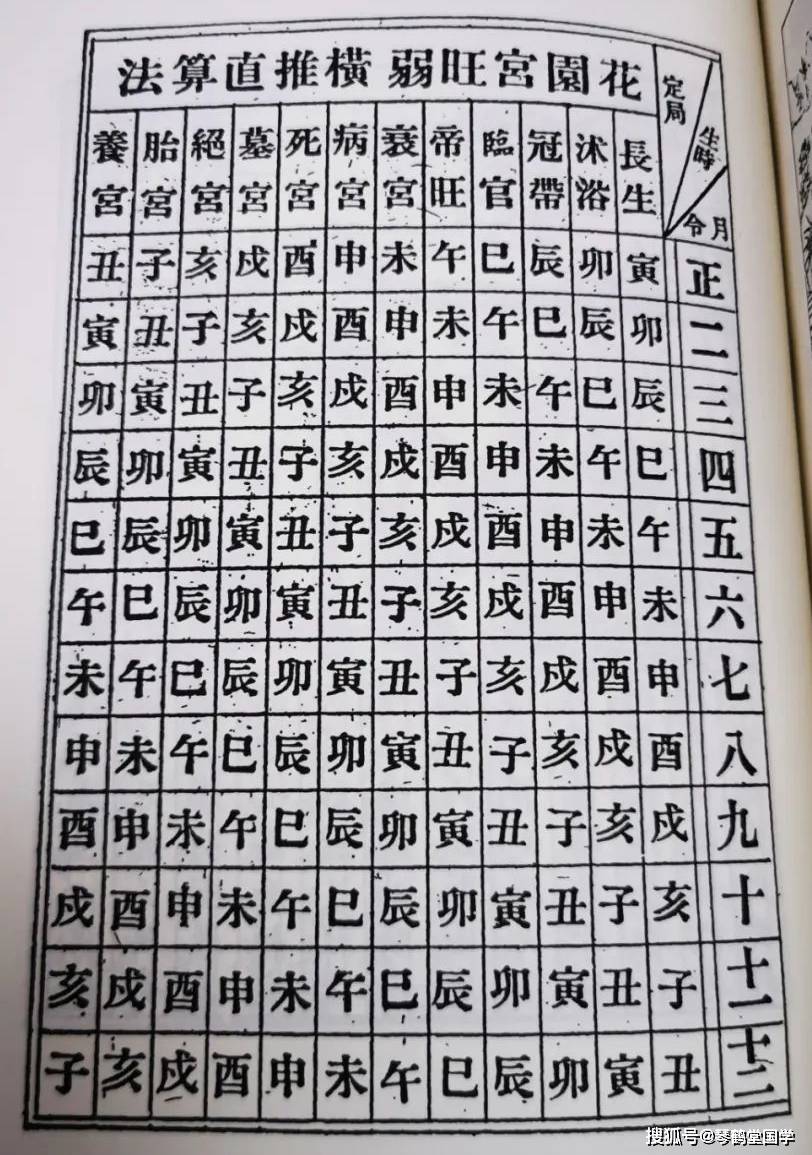 花園宮旺弱橫推直算法
定局 生時 月令
長生 沐浴 冠帶 臨官 帝旺 衰宮 病宮 死宮 墓宮 絕宮 胎宮 養宮
正 寅 卯 辰 巳 午 未 申 酉 戌 亥 子 丑
二 卯 辰 巳 午 未 申 酉 戌 亥 子 丑 寅
三 辰 巳 午 未 申 酉 戌 亥 子 丑 寅 卯
四 巳 午 未 申 酉 戌 亥 子 丑 寅 卯 辰
五 午 未 申 酉 戌 亥 子 丑 寅 卯 辰 巳
六 未 申 酉 戌 亥 子 丑 寅 卯 辰 巳 午
七 申 酉 戌 亥 子 丑 寅 卯 辰 巳 午 未
八 酉 戌 亥 子 丑 寅 卯 辰 巳 午 未 申
九 戌 亥 子 丑 寅 卯 辰 巳 午 未 申 酉
十 亥 子 丑 寅 卯 辰 巳 午 未 申 酉 戌
十一 子 丑 寅 卯 辰 巳 午 未 申 酉 戌 亥
十二 丑 寅 卯 辰 巳 午 未 申 酉 戌 亥 子
搜狐号@琴鹤堂国学